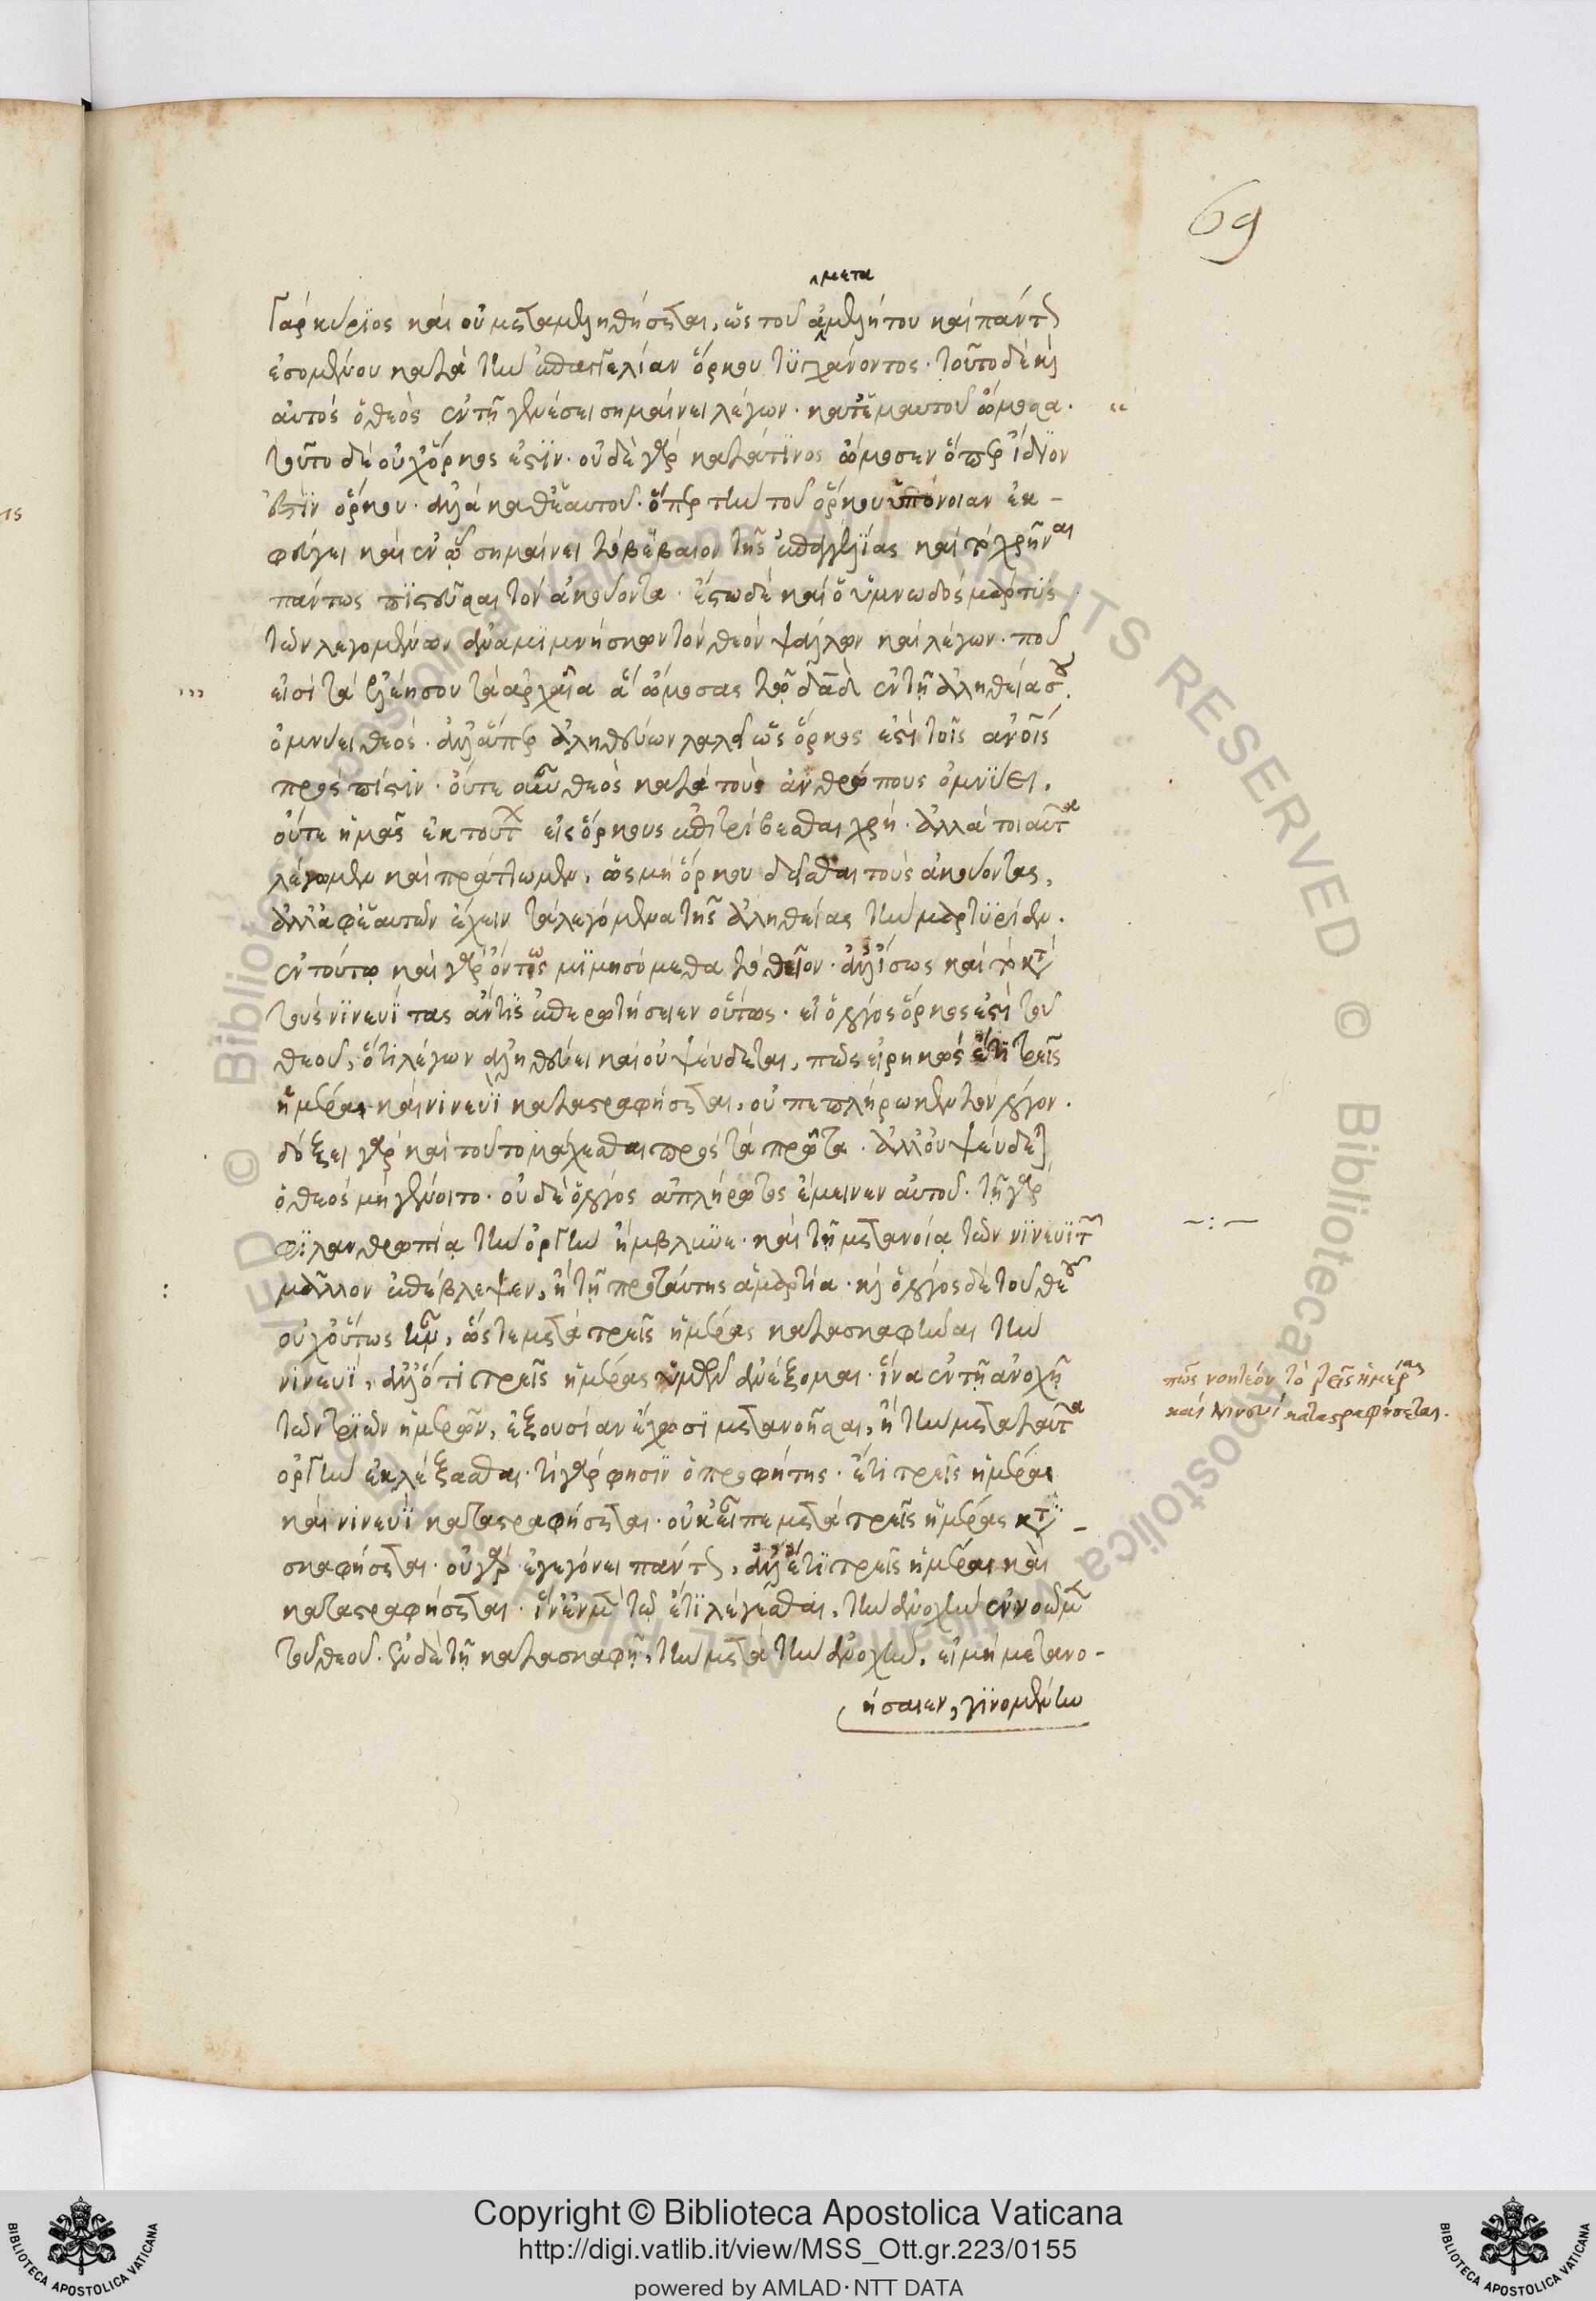 69
μετα
γάρ κύριος καὶ οὐ μεταμεληθήσεται, ὡς τοῦ ἀμελήτου καὶ πάντως
ἐσομένου κατὰ τὴν ἐπαγγελίαν ὅρκου τυγχάνοντος. τοῦτο δὲ καὶ
αὐτὸς ὁ θεὸς ἐν τῇ γενέσει σημαίνει λέγων. κατ' ἐμαυτοῦ ὤμοσα.
τοῦτο δὲ οὐχ ὅρκος ἐστιν. οὐδὲ γὰρ κατά τινος ὤμοσεν ὅπερ ἴδιον
ἐστὶν ὅρκου. ἀλλὰ καθ' ἑαυτοῦ. ὅπερ τὴν τοῦ ὅρκου ὑπόνοιαν ἐκ-
φεύγει καὶ ἐν ᾧ σημαίνει τὸ βέβαιον τῆς ἐπαγγελίας καὶ τὸ χρῆναι
πάντως πιστεῦσαι τὸν ἀκούοντα. ἔστω δὲ καὶ ὁ ὑμνωδὸς μάρτυς
τῶν λεγομένων ἀναμιμνήσκων τὸν θεὸν ψάλλων καὶ λέγων. ποῦ
εἰσὶ τὰ ἐλέη σου τὰ ἀρχαῖα ἃ ὤμοσας τῷ δαδ ἐν τῇ ἀληθεία σου.
ὀμνύει θεός. ἀλλ' ἅπερ ἀληθεύων λαλεῖ ὡς ὅρκος ἐστὶ τοῖς ανοις
πρὸς πίστιν. οὔτε οὖν θεὸς κατὰ τοὺς ἀνθρώπους ὀμνύει,
οὔτε ἡμᾶς ἐκ τούτου εἰς ὅρκους ἐπιτρίβεσθαι χρή. ἀλλὰ τοιαῦτα
λέγωμεν καὶ πράττωμεν, ὡς μὴ ὅρκου δεῖσθαι τοὺς ἀκούοντας,
ἀλλ' ἀφ' ἑαυτῶν ἔχειν τὰ λεγόμενα τῆς ἀληθείας τὴν μαρτυρίαν.
ἐν τούτῳ καὶ γὰρ ὄντως μιμησόμεθα τὸ θεῖον. ἀλλ' ἴσως καὶ τὸ κατὰ
τοὺς νινευίτας ἄν τις ἐπερωτήσειεν οὕτως. εἰ ὁ λόγος ὅρκος ἐστὶ τοῦ
θεοῦ, ὅτι λέγων ἀληθεύει καὶ οὐ ψεύδεται, πῶς εἰρηκώς ἔτι τρεῖς
ἡμέραι καὶ νινευῒ καταστραφήσεται, οὐ πεπλήρωκεν τὸν λόγον.
δόξει γὰρ καὶ τοῦτο μάχεσθαι πρὸς τὰ πρῶτα. ἀλλ' οὐ ψεύδεται
ὁ θεὸς μὴ γένοιτο. οὐδὲ ὁ λόγος ἀπλήρωτος ἔμεινεν αὐτοῦ. τῇ γὰρ
φιλανθρωπίᾳ τὴν ὀργὴν ἤμβλυνε. καὶ τῇ μετανοίᾳ τῶν νινευϊτῶν
μᾶλλον ἐπέβλεψεν, ἢ τῇ πρὸ ταύτης ἁμαρτία. καὶ ὁ λόγος δὲ τοῦ θεοῦ
οὐχ οὕτως ἦν, ὥστε μετὰ τρεῖς ἡμέρας κατασκαφῆναι τὴν
νινευΐ, ἀλλ' ὅτι τρεῖς ἡμέρας ὑμῶν ἀνέξομαι. ἵνα ἐν τῇ ἀνοχῇ
τῶν τριῶν ἡμερῶν, ἐξουσίαν ἔχωσι μετανοῆσαι, ἢ τὴν μετὰ ταῦτα
ὀργὴν ἐκλέξασθαι. τί γάρ φησιν ὁ προφήτης. ἔτι τρεῖς ἡμέραι
καὶ νινευῒ καταστραφήσεται. οὐκ εἶπε μετὰ τρεῖς ἡμέρας κατα-
σκαφήσεται. οὐ γὰρ ἐγεγόνει πάντως, ἀλλ' ἔτι τρεῖς ἡμέραι καὶ
καταστραφήσεται. ἵν' ἐν μὲν τῷ ἔτι λέγεσθαι, τὴν ἀνοχὴν ἐννοῶμεν
τοῦ θεοῦ. ἐν δὲ τῇ κατασκαφῇ, τὴν μετὰ τὴν ἀνοχήν, εἰ μὴ μετανο-
ήσαιεν, γινομένην
πῶς νοητέον τὸ τρεῖς ἡμέρας
καὶ Νινευί καταστραφήσεται.
Copyright © Biblioteca Apostolica Vaticana
http://digi.vatlib.it/view/MSS_Ott.gr.223/0155
powered by AMLAD·NTT DATA